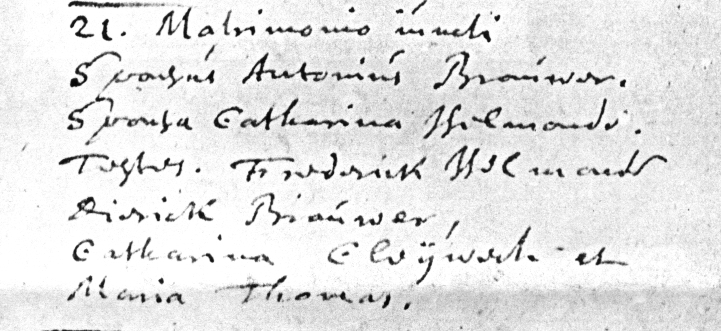 21. Matrimonio iuncti
Sponsus Antonius Brouwer.
Sponsa Catharina Helmonds.
Testes. Frederick Helmonds
Dierick Brouwer,
Catharina Cleÿwech et
Maria Thomas.